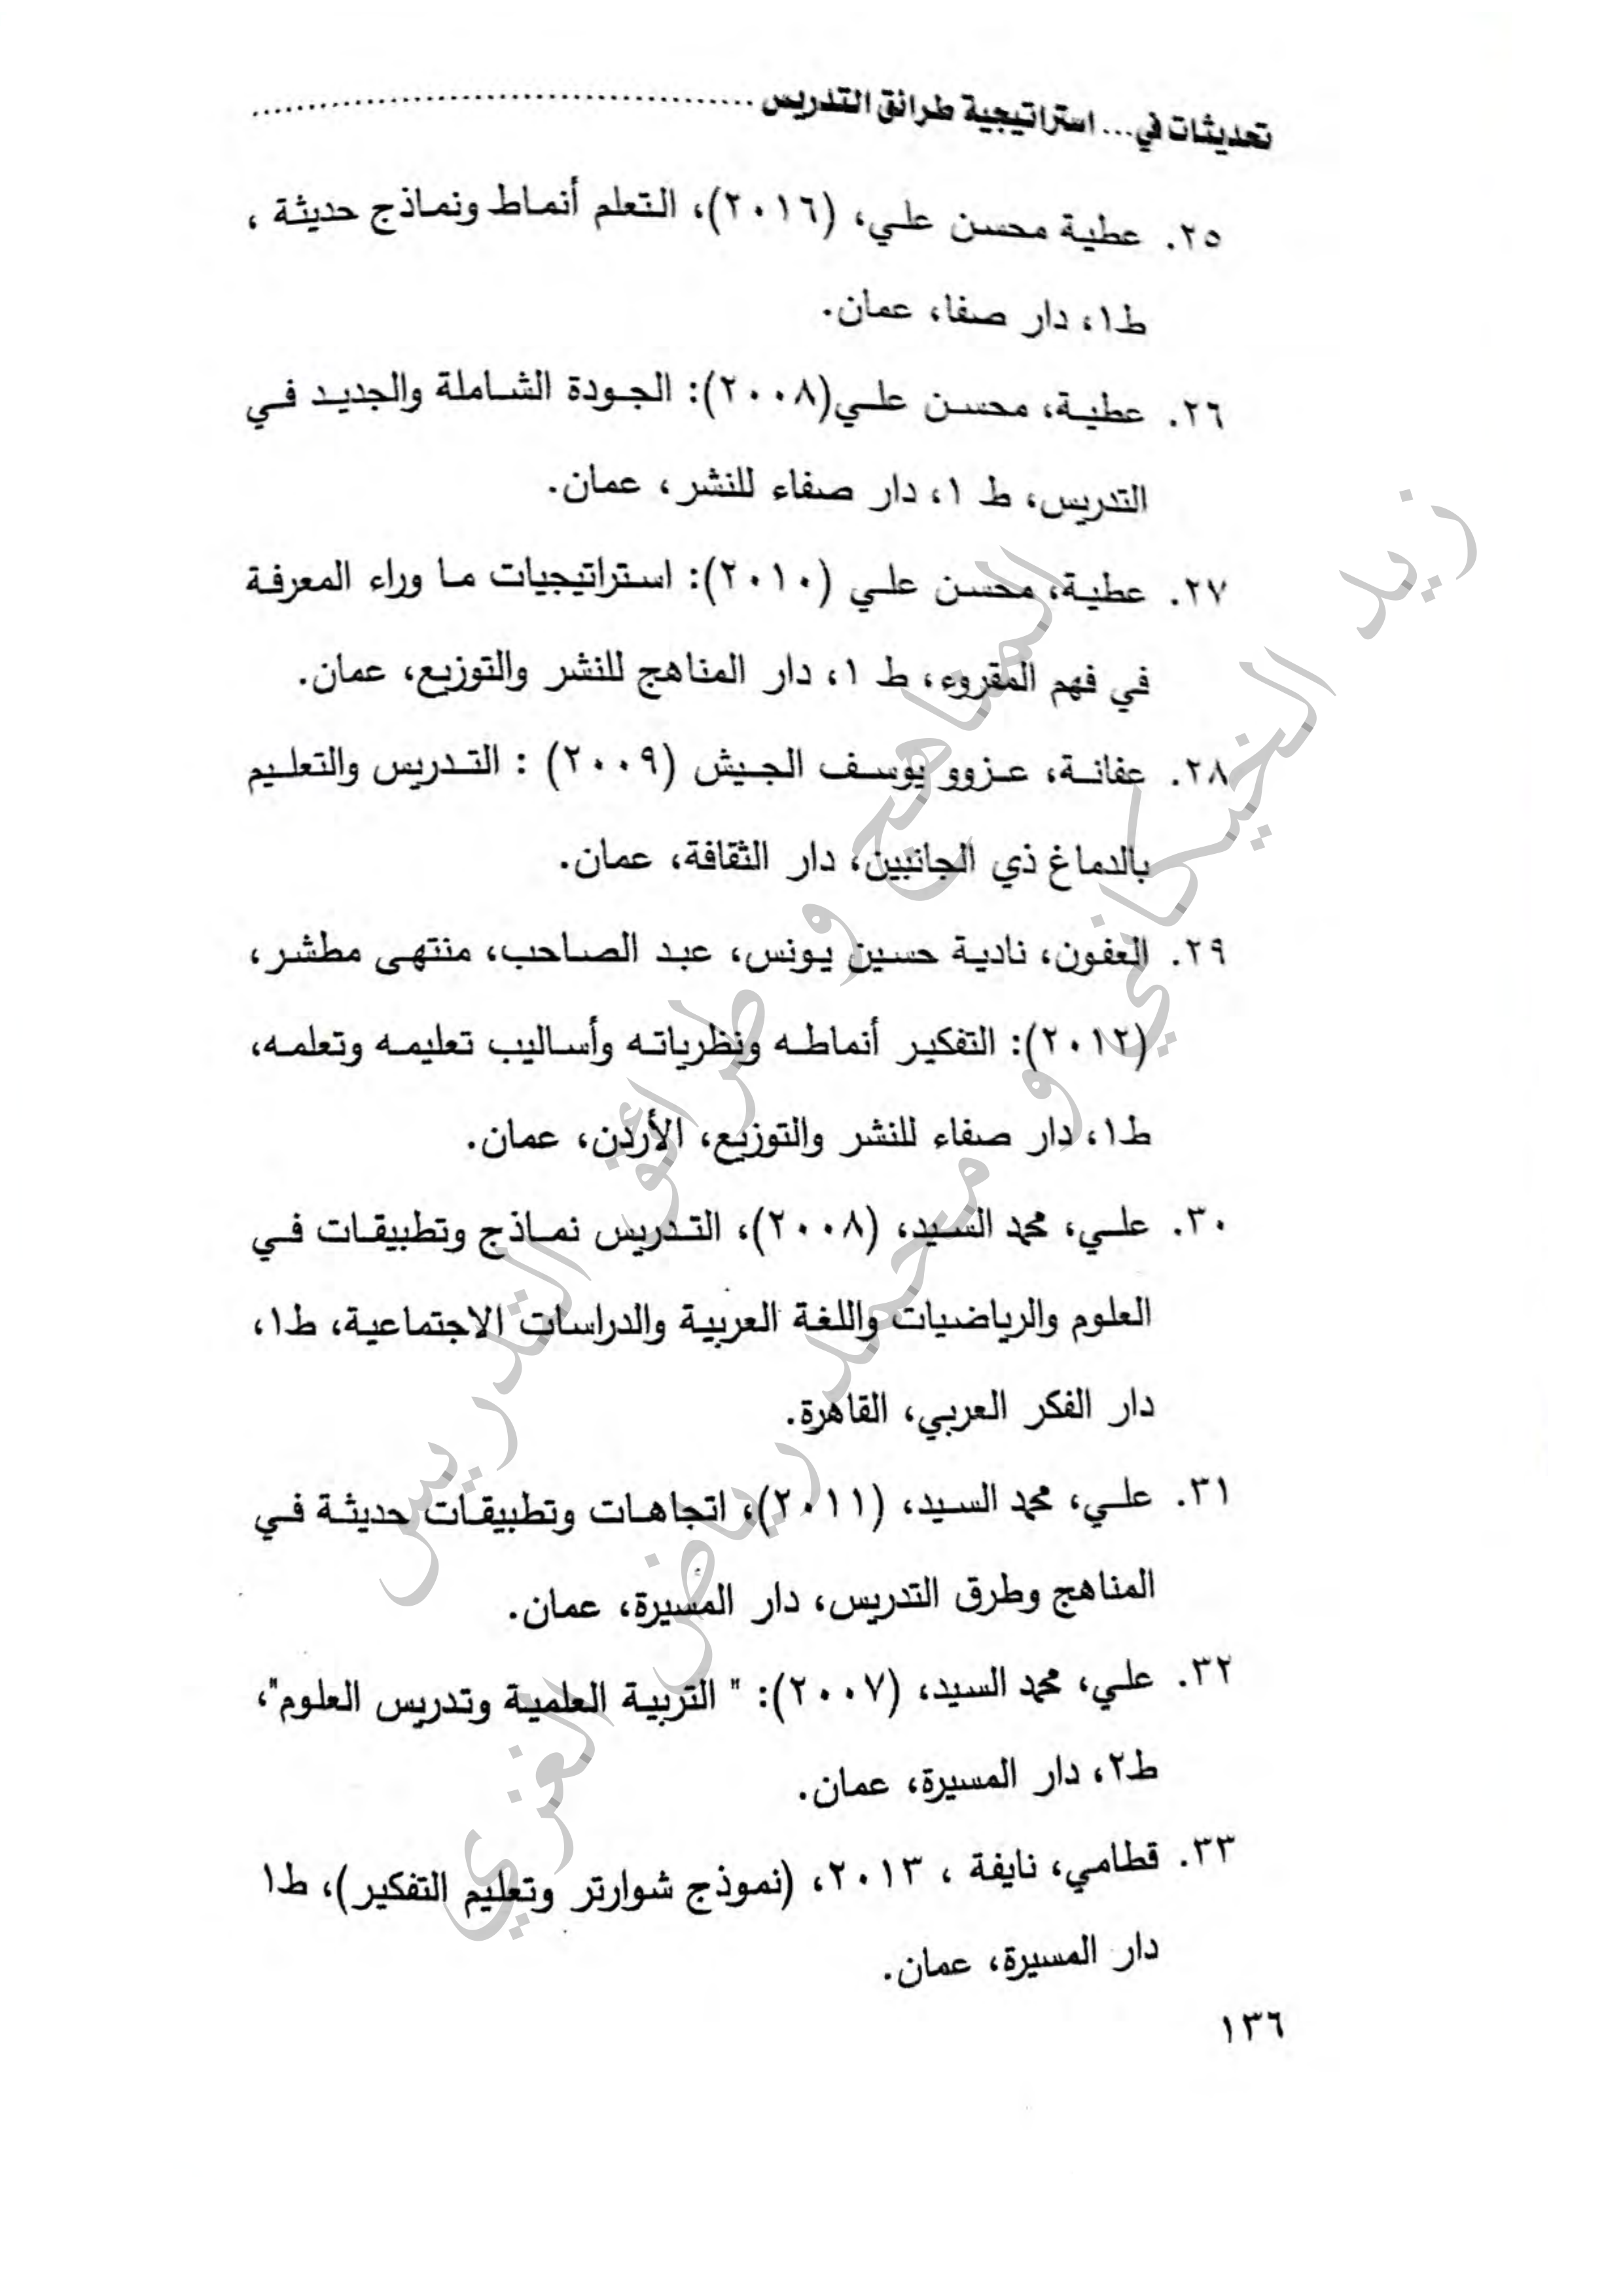 تحديثات في... استراتيجية طرائق التدريس ................................................
٢٥. عطية محسن علي، (٢٠١٦)، التعلم أنماط ونماذج حديثة ،
ط١، دار صفا، عمان.
٢٦. عطية، محسن علي(٢٠٠٨): الجودة الشاملة والجديد في
التدريس، ط ١، دار صفاء للنشر، عمان.
٢٧. عطية، محسن علي (٢٠١٠): استراتيجيات ما وراء المعرفة
في فهم المقروء، ط ١، دار المناهج للنشر والتوزيع، عمان.
٢٨. عفانة، عزوو يوسف الجيش (٢٠٠٩) : التدريس والتعليم
بالدماغ ذي الجانبين، دار الثقافة، عمان.
٢٩. العفون، نادية حسين يونس، عبد الصاحب، منتهى مطشر،
(٢٠١٢): التفكير أنماطه ونظرياته وأساليب تعليمه وتعلمه،
ط١، دار صفاء للنشر والتوزيع، الأردن، عمان.
٣٠. علي، محمد السيد، (٢٠٠٨)، التدريس نماذج وتطبيقات في
العلوم والرياضيات واللغة العربية والدراسات الاجتماعية، ط١،
دار الفكر العربي، القاهرة.
٣١. علي، محمد السيد، (٢٠١١)، اتجاهات وتطبيقات حديثة في
المناهج وطرق التدريس، دار المسيرة، عمان.
٣٢. علي، محمد السيد، (٢٠٠٧): " التربية العلمية وتدريس العلوم"،
ط٢، دار المسيرة، عمان.
٣٣. قطامي، نايفة ، ٢٠١٣، (نموذج شوارتر وتعليم التفكير)، ط١
دار المسيرة، عمان.
١٣٦
المناهج و طرائق التدريس
زيد الخيكاني و محمد رياض الغزي